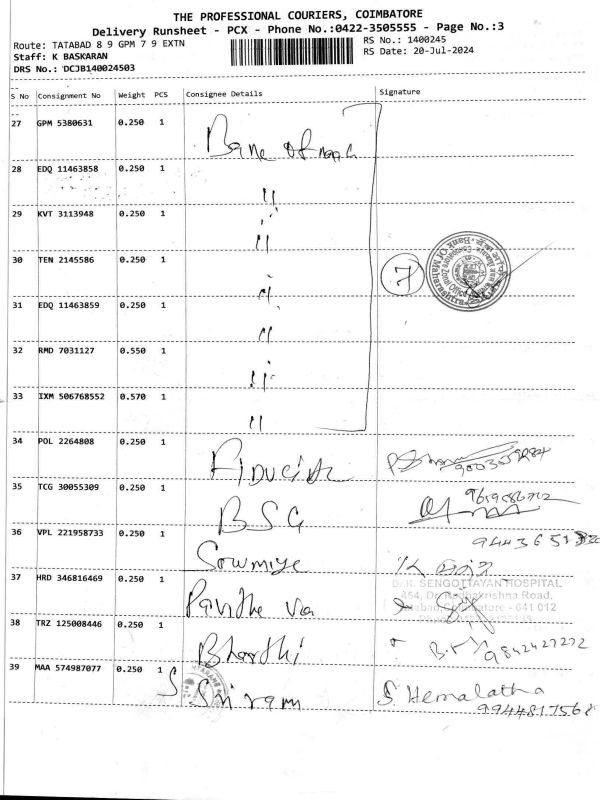 THE PROFESSIONAL COURIERS, COIMBATORE
Delivery Runsheet - PCX - Phone No.:0422-3505555 - Page No.:3
Route: TATABAD 8 9 GPM 7 9 EXTN
RS No.: 1400245
Staff: K BASKARAN
RS Date: 20-Jul-2024
DRS No.: DCJB140024503
S No Consignment No Weight PCS Consignee Details Signature
27 GPM 5380631 0.250 1 Bank of
28 EDQ 11463858 0.250 1 "
29 KVT 3113948 0.250 1 "
30 TEN 2145586 0.250 1 " 7
Bank Of Maharashtra
Coimbatore Zonal Office
31 EDQ 11463859 0.250 1 "
32 RMD 7031127 0.550 1 "
33 IXM 506768552 0.570 1 "
34 POL 2264808 0.250 1
35 TCG 30055309 0.250 1 BSG
36 VPL 221958733 0.250 1 Sowmiya
37 HRD 346816469 0.250 1 Pavithra
K. SENGOTTAYAN HOSPITAL
454, Dr. Radhakrishna Road,
Tatabad, Coimbatore - 641 012
38 TRZ 125008446 0.250 1 Bharthi 9842427272
39 MAA 574987077 0.250 1 Sri ram S. Hemalatha